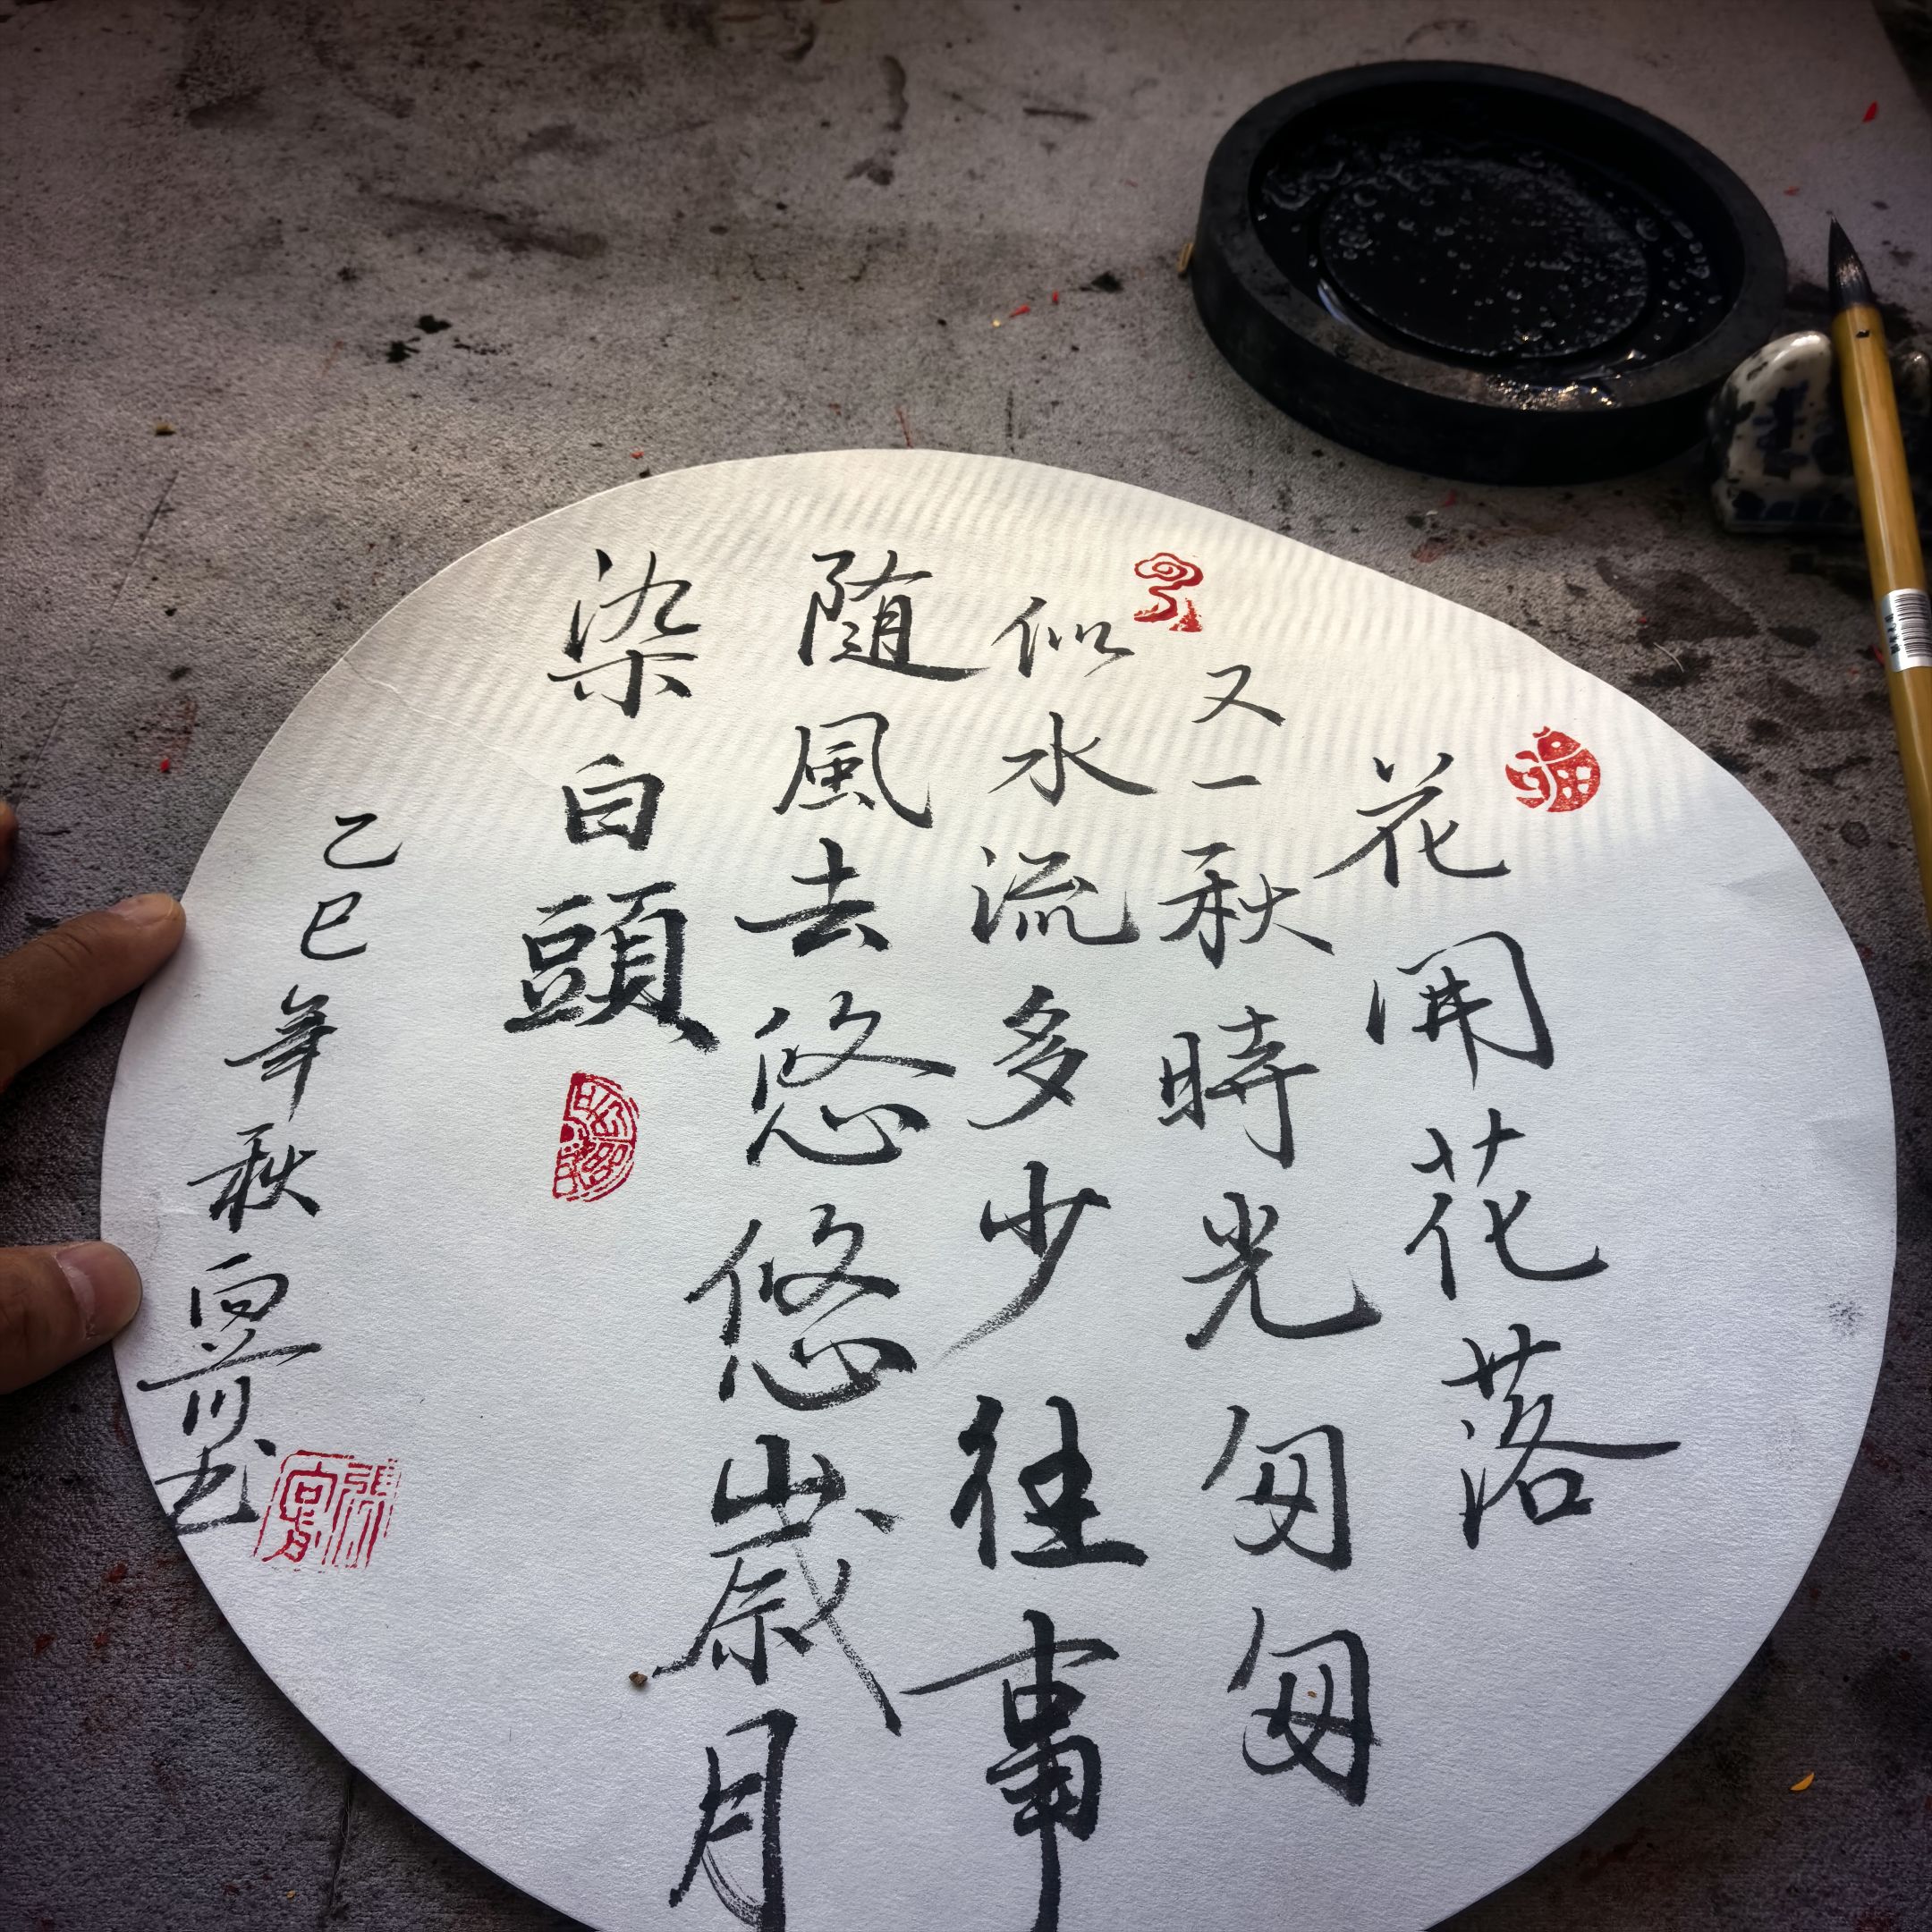 花開花落
又一秋時光匆匆
似水流多少往事
随風去悠悠歲月
染白頭
乙巳年秋